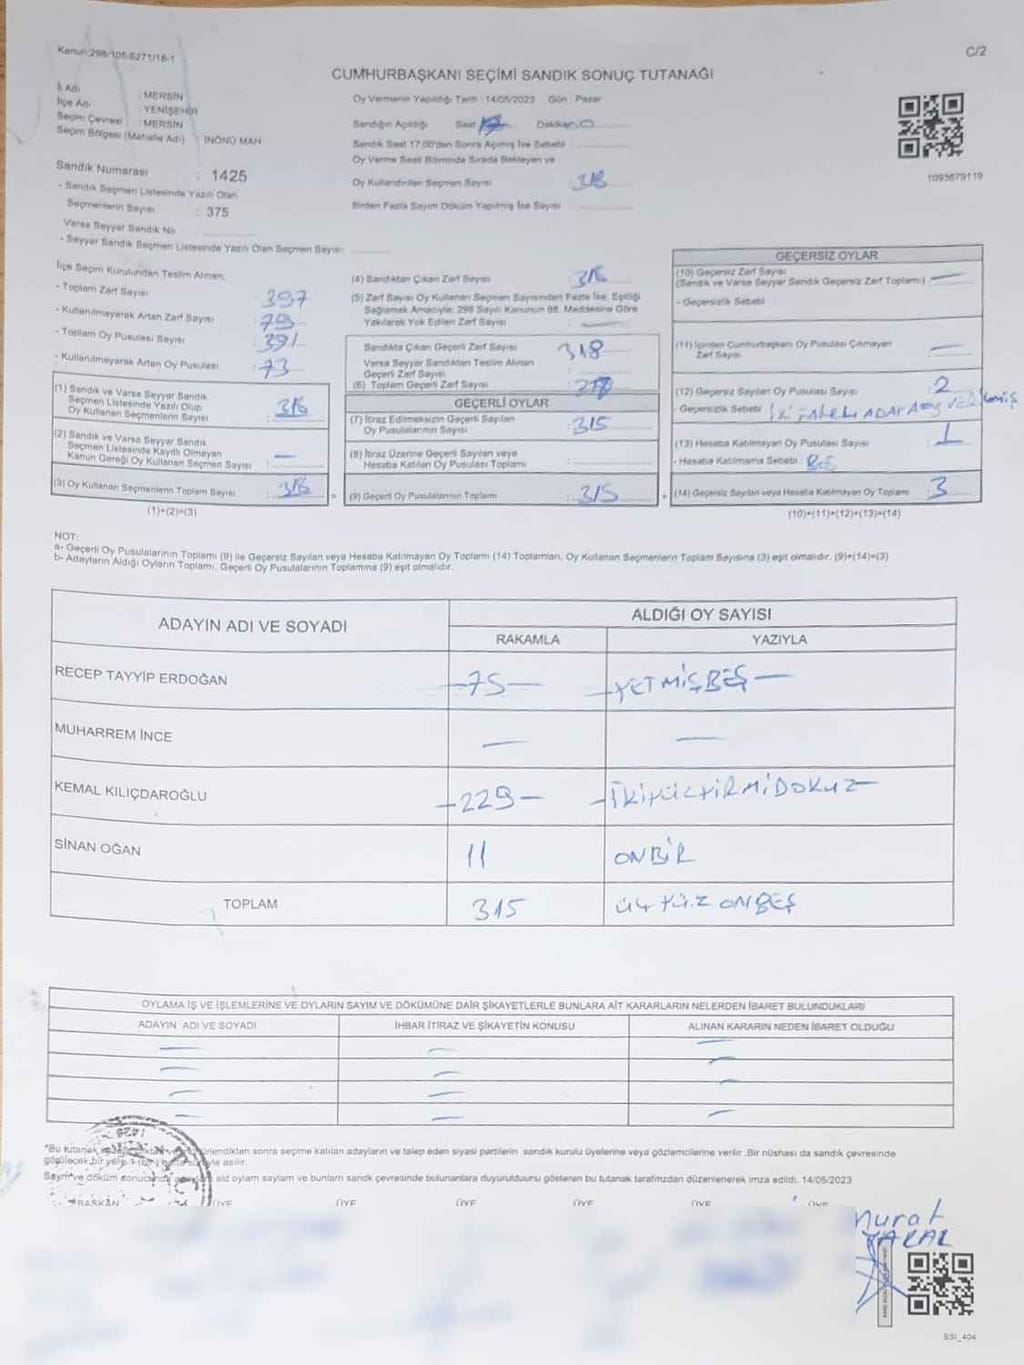 Kanun:298/105,6271/18-1
C/2
CUMHURBAŞKANI SEÇİMİ SANDIK SONUÇ TUTANAĞI
İl Adı : MERSİN
İlçe Adı : YENİŞEHİR
Seçim Çevresi : MERSİN
Seçim Bölgesi (Mahalle Adı) : İNÖNÜ MAH
Oy Vermenin Yapıldığı Tarih : 14/05/2023 Gün : Pazar
Sandığın Açıldığı Saat 17 Dakika
Sandık Saat 17.00'den Sonra Açılmış İse Sebebi :
Oy Verme Saati Bitiminde Sırada Bekleyen ve
Oy Kullandırılan Seçmen Sayısı : 318
Birden Fazla Sayım Döküm Yapılmış İse Sayısı :
1093679119
Sandık Numarası : 1425
- Sandık Seçmen Listesinde Yazılı Olan
Seçmenlerin Sayısı : 375
Varsa Seyyar Sandık No
- Seyyar Sandık Seçmen Listesinde Yazılı Olan Seçmen Sayısı:
İlçe Seçim Kurulundan Teslim Alınan;
- Toplam Zarf Sayısı : 397
- Kullanılmayarak Artan Zarf Sayısı : 79
- Toplam Oy Pusulası Sayısı : 391
- Kullanılmayarak Artan Oy Pusulası : 73
(1) Sandık ve Varsa Seyyar Sandık
Seçmen Listesinde Yazılı Olup
Oy Kullanan Seçmenlerin Sayısı : 318
(2) Sandık ve Varsa Seyyar Sandık
Seçmen Listesinde Kayıtlı Olmayan
Kanun Gereği Oy Kullanan Seçmen Sayısı : —
(3) Oy Kullanan Seçmenlerin Toplam Sayısı : 318
(1)+(2)=(3)
(4) Sandıktan Çıkan Zarf Sayısı : 318
(5) Zarf Sayısı Oy Kullanan Seçmen Sayısından Fazla İse, Eşitliği
Sağlamak Amacıyla; 298 Sayılı Kanunun 98. Maddesine Göre
Yakılarak Yok Edilen Zarf Sayısı : —
Sandıkta Çıkan Geçerli Zarf Sayısı : 318
Varsa Seyyar Sandıktan Teslim Alınan
Geçerli Zarf Sayısı :
(6) Toplam Geçerli Zarf Sayısı : 318
GEÇERLİ OYLAR
(7) İtiraz Edilmeksizin Geçerli Sayılan
Oy Pusulalarının Sayısı : 315
(8) İtiraz Üzerine Geçerli Sayılan veya
Hesaba Katılan Oy Pusulası Toplamı :
(9) Geçerli Oy Pusulalarının Toplamı : 315
GEÇERSİZ OYLAR
(10) Geçersiz Zarf Sayısı
(Sandık ve Varsa Seyyar Sandık Geçersiz Zarf Toplamı) : —
- Geçersizlik Sebebi :
(11) İçinden Cumhurbaşkanı Oy Pusulası Çıkmayan
Zarf Sayısı : —
(12) Geçersiz Sayılan Oy Pusulası Sayısı : 2
- Geçersizlik Sebebi : İKİ ADAYA OY VERİLMİŞ
(13) Hesaba Katılmayan Oy Pusulası Sayısı : 1
- Hesaba Katılmama Sebebi : BOŞ
(14) Geçersiz Sayılan veya Hesaba Katılmayan Oy Toplamı : 3
(10)+(11)+(12)+(13)=(14)
NOT:
a- Geçerli Oy Pusulalarının Toplamı (9) ile Geçersiz Sayılan veya Hesaba Katılmayan Oy Toplamı (14) Toplamları, Oy Kullanan Seçmenlerin Toplam Sayısına (3) eşit olmalıdır. (9)+(14)=(3)
b- Adayların Aldığı Oyların Toplamı, Geçerli Oy Pusulalarının Toplamına (9) eşit olmalıdır.
ADAYIN ADI VE SOYADI
ALDIĞI OY SAYISI
RAKAMLA YAZIYLA
RECEP TAYYİP ERDOĞAN —75— —YETMİŞBEŞ—
MUHARREM İNCE — —
KEMAL KILIÇDAROĞLU —229— —İKİYÜZYİRMİDOKUZ—
SİNAN OĞAN 11 ONBİR
TOPLAM 315 ÜÇYÜZ ONBEŞ
OYLAMA İŞ VE İŞLEMLERİNE VE OYLARIN SAYIM VE DÖKÜMÜNE DAİR ŞİKAYETLERLE BUNLARA AİT KARARLARIN NELERDEN İBARET BULUNDUKLARI
ADAYIN ADI VE SOYADI İHBAR İTİRAZ VE ŞİKAYETİN KONUSU ALINAN KARARIN NEDEN İBARET OLDUĞU
*Bu tutanak sonra seçime katılan adayların ve talep eden siyasi partilerin sandık kurulu üyelerine veya gözlemcilerine verilir .Bir nüshası da sandık çevresinde
görülecek bir yere asılır.
Sayım ve döküm sonucunda oyların sayılan ve bunların sandık çevresinde bulunanlara duyurulduğunu gösteren bu tutanak tarafımızdan düzenlenerek imza edildi. 14/05/2023
BAŞKAN ÜYE ÜYE ÜYE ÜYE ÜYE ÜYE
Murat
SSI_404